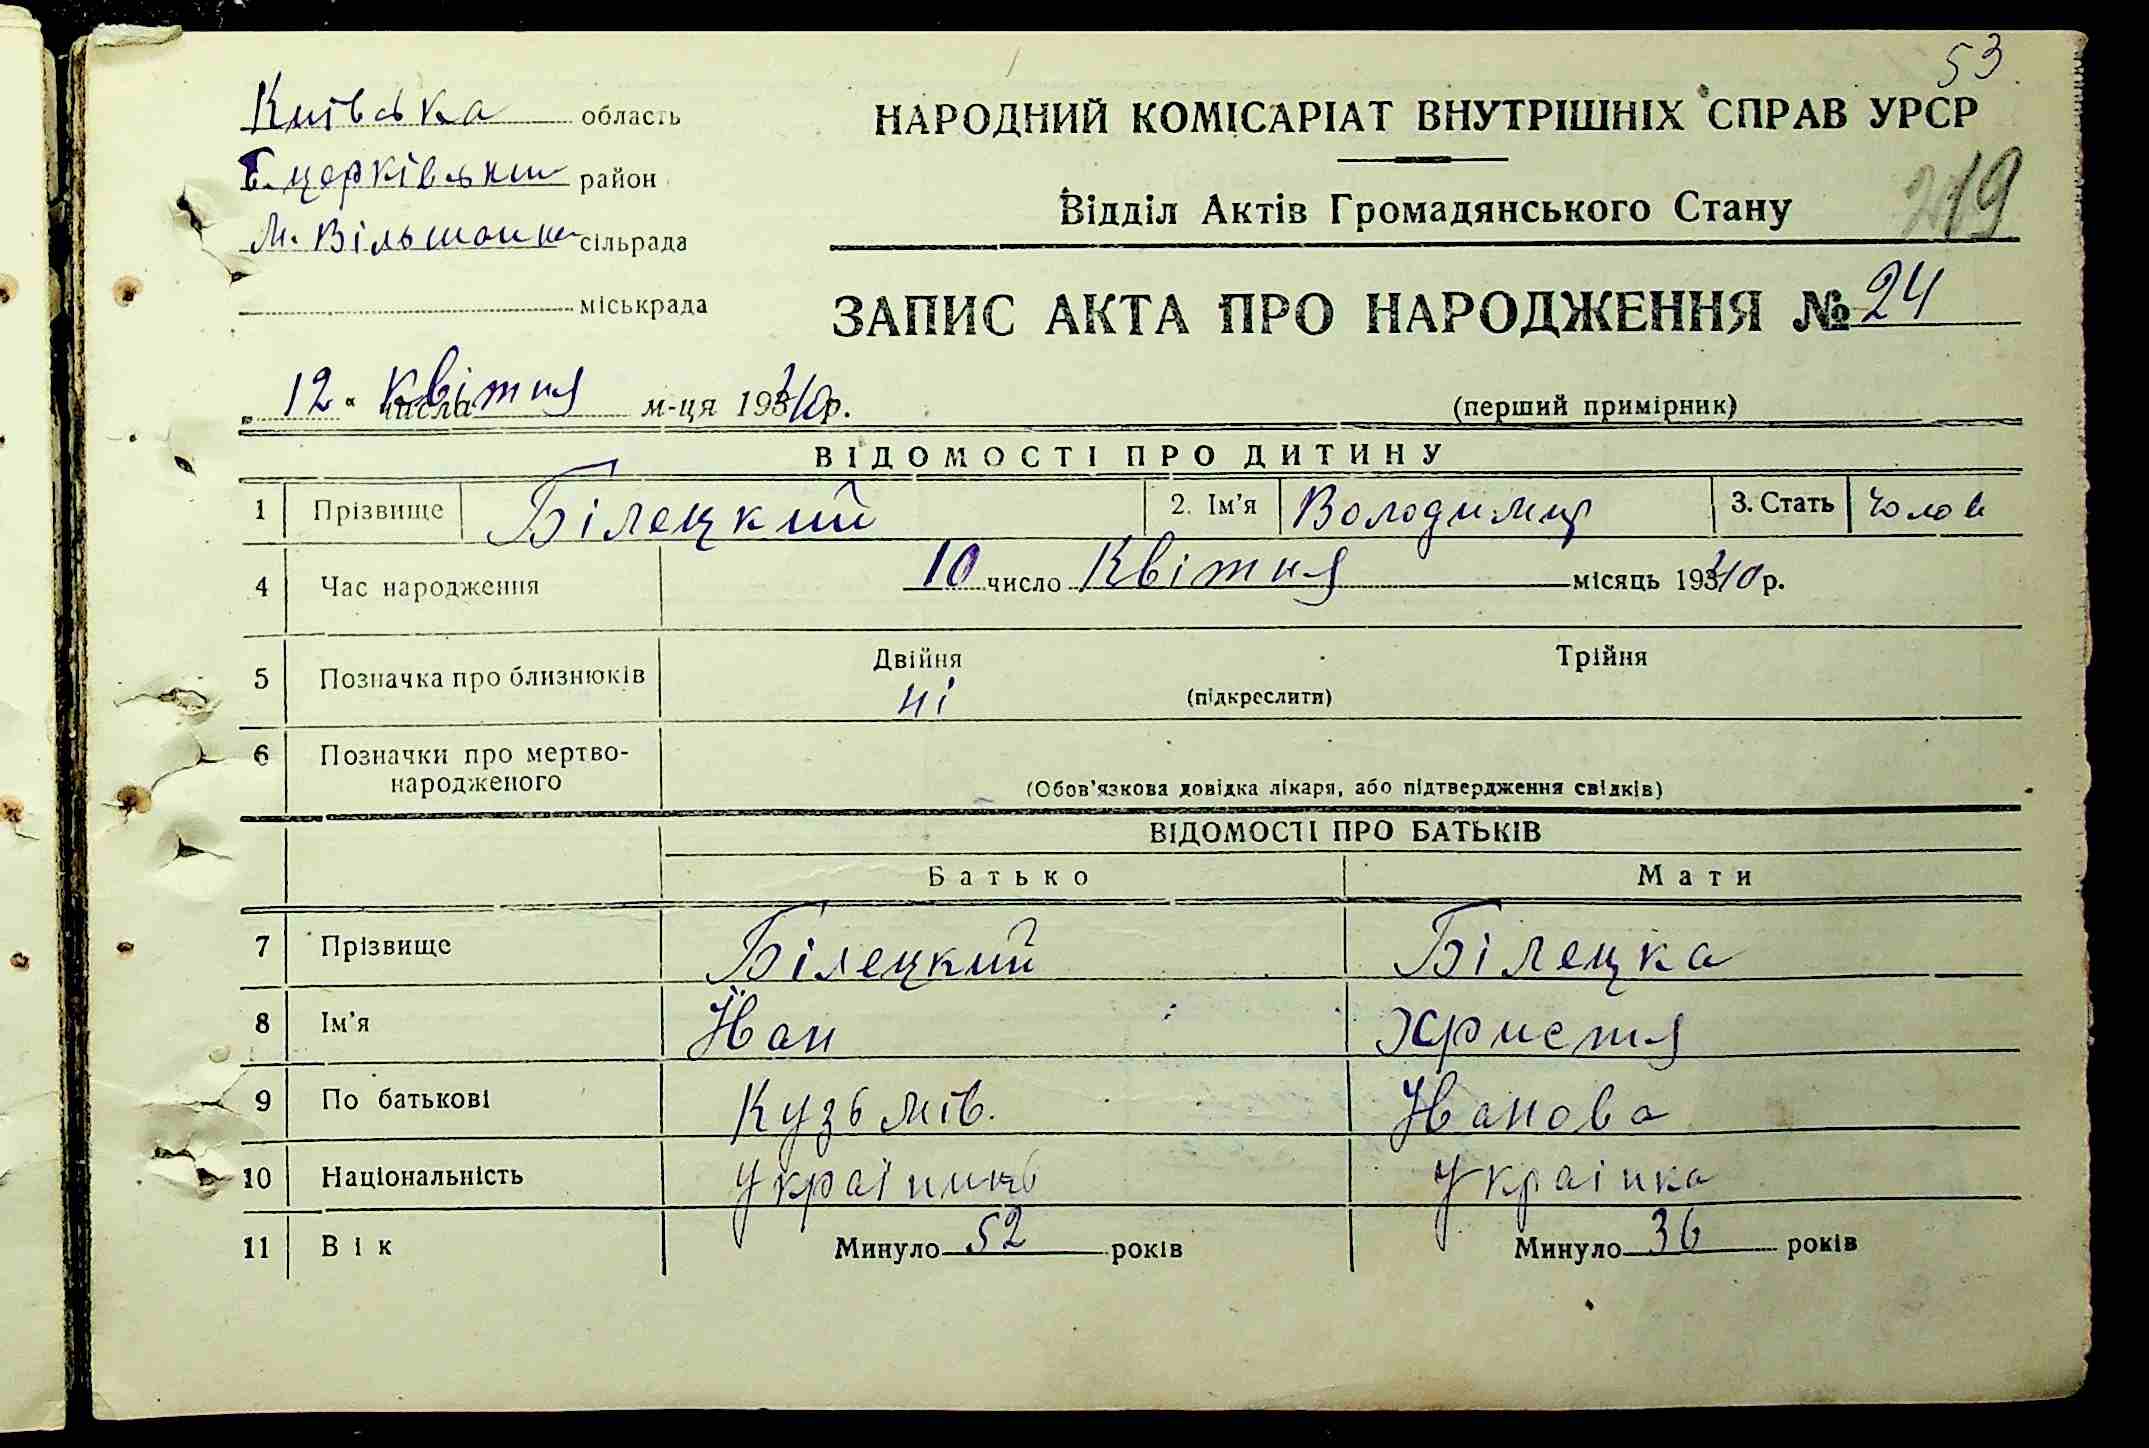 53
Київська область
НАРОДНИЙ КОМІСАРІАТ ВНУТРІШНІХ СПРАВ УРСР
Б. церківський район
Відділ Актів Громадянського Стану
219
М. Вільшанка сільрада
міськрада
ЗАПИС АКТА ПРО НАРОДЖЕННЯ № 24
„ 12 “ числа Квітня м-ця 1940 р.
(перший примірник)
ВІДОМОСТІ ПРО ДИТИНУ
1 Прізвище Білецкий 2. Ім'я Володимир 3. Стать чолов
4 Час народження 10 число Квітня місяць 1940 р.
5 Позначка про близнюків Двійня Трійня
ні (підкреслити)
6 Позначки про мертво-
народженого
(Обов'язкова довідка лікаря, або підтвердження свідків)
ВІДОМОСТІ ПРО БАТЬКІВ
Батько Мати
7 Прізвище Білецкий Білецка
8 Ім'я Иван Христя
9 По батькові Кузьмів. Иванова
10 Національність Українець Украінка
11 Вік Минуло 52 років Минуло 36 років